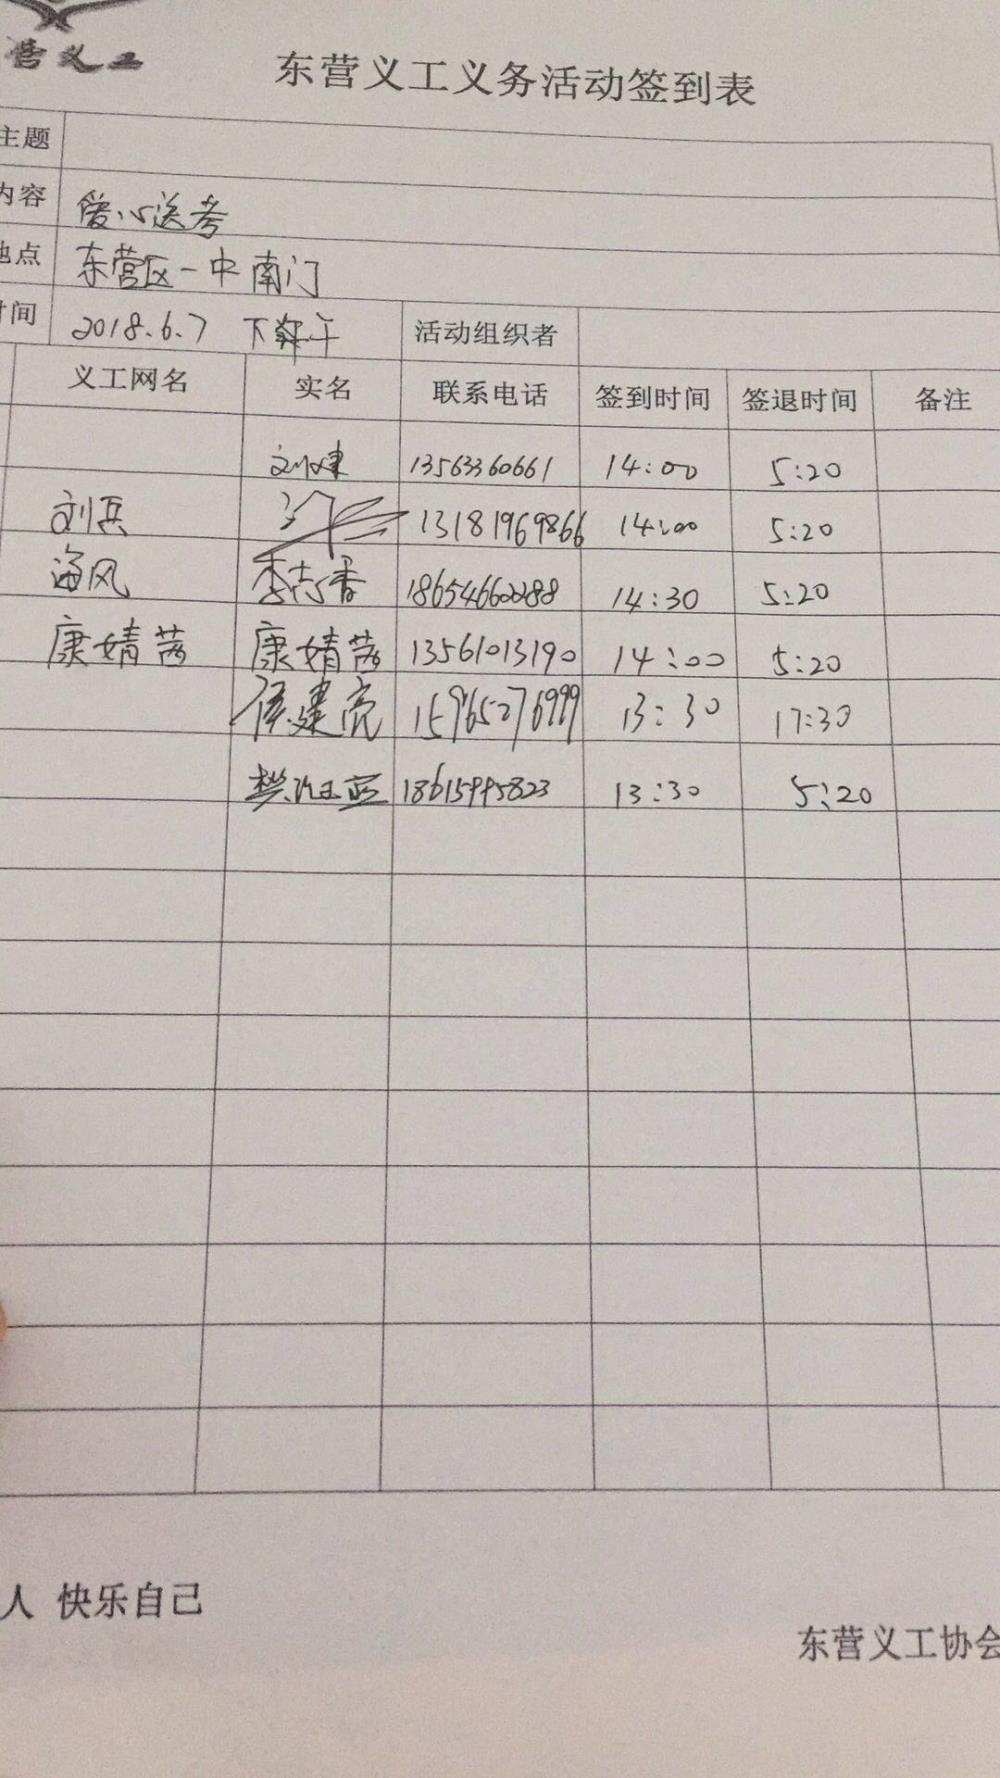 营义工
东营义工义务活动签到表
主题
内容 爱心送考
地点 东营区一中南门
时间 2018.6.7 下午 活动组织者
义工网名 实名 联系电话 签到时间 签退时间 备注
刘建 13563360661 14:00 5:20
刘兵 13181969866 14:00 5:20
海风 李志香 18654660288 14:30 5:20
康婧茜 康婧茜 13561013190 14:00 5:20
侯建亮 15965276999 13:30 17:30
18615995823 13:30 5:20
人 快乐自己
东营义工协会